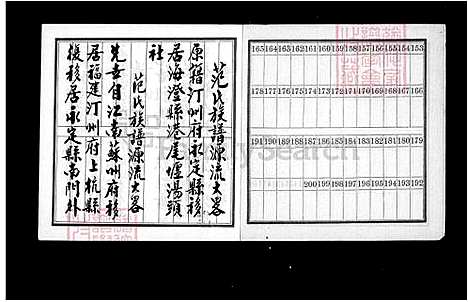 范氏族譜源流大畧
原籍汀州府永定縣移
居海澄縣港尾堡湯頭
社
范氏族譜源流大畧
先世自江南蘇州府移
居福建汀州府上杭縣
後移居永定縣南門外
165 164 163 162 161 160 159 158 157 156 155 154 153
178 177 176 175 174 173 172 171 170 169 168 167 166
191 190 189 188 187 186 185 184 183 182 181 180 179
200 199 198 197 196 195 194 193 192
FamilySearch